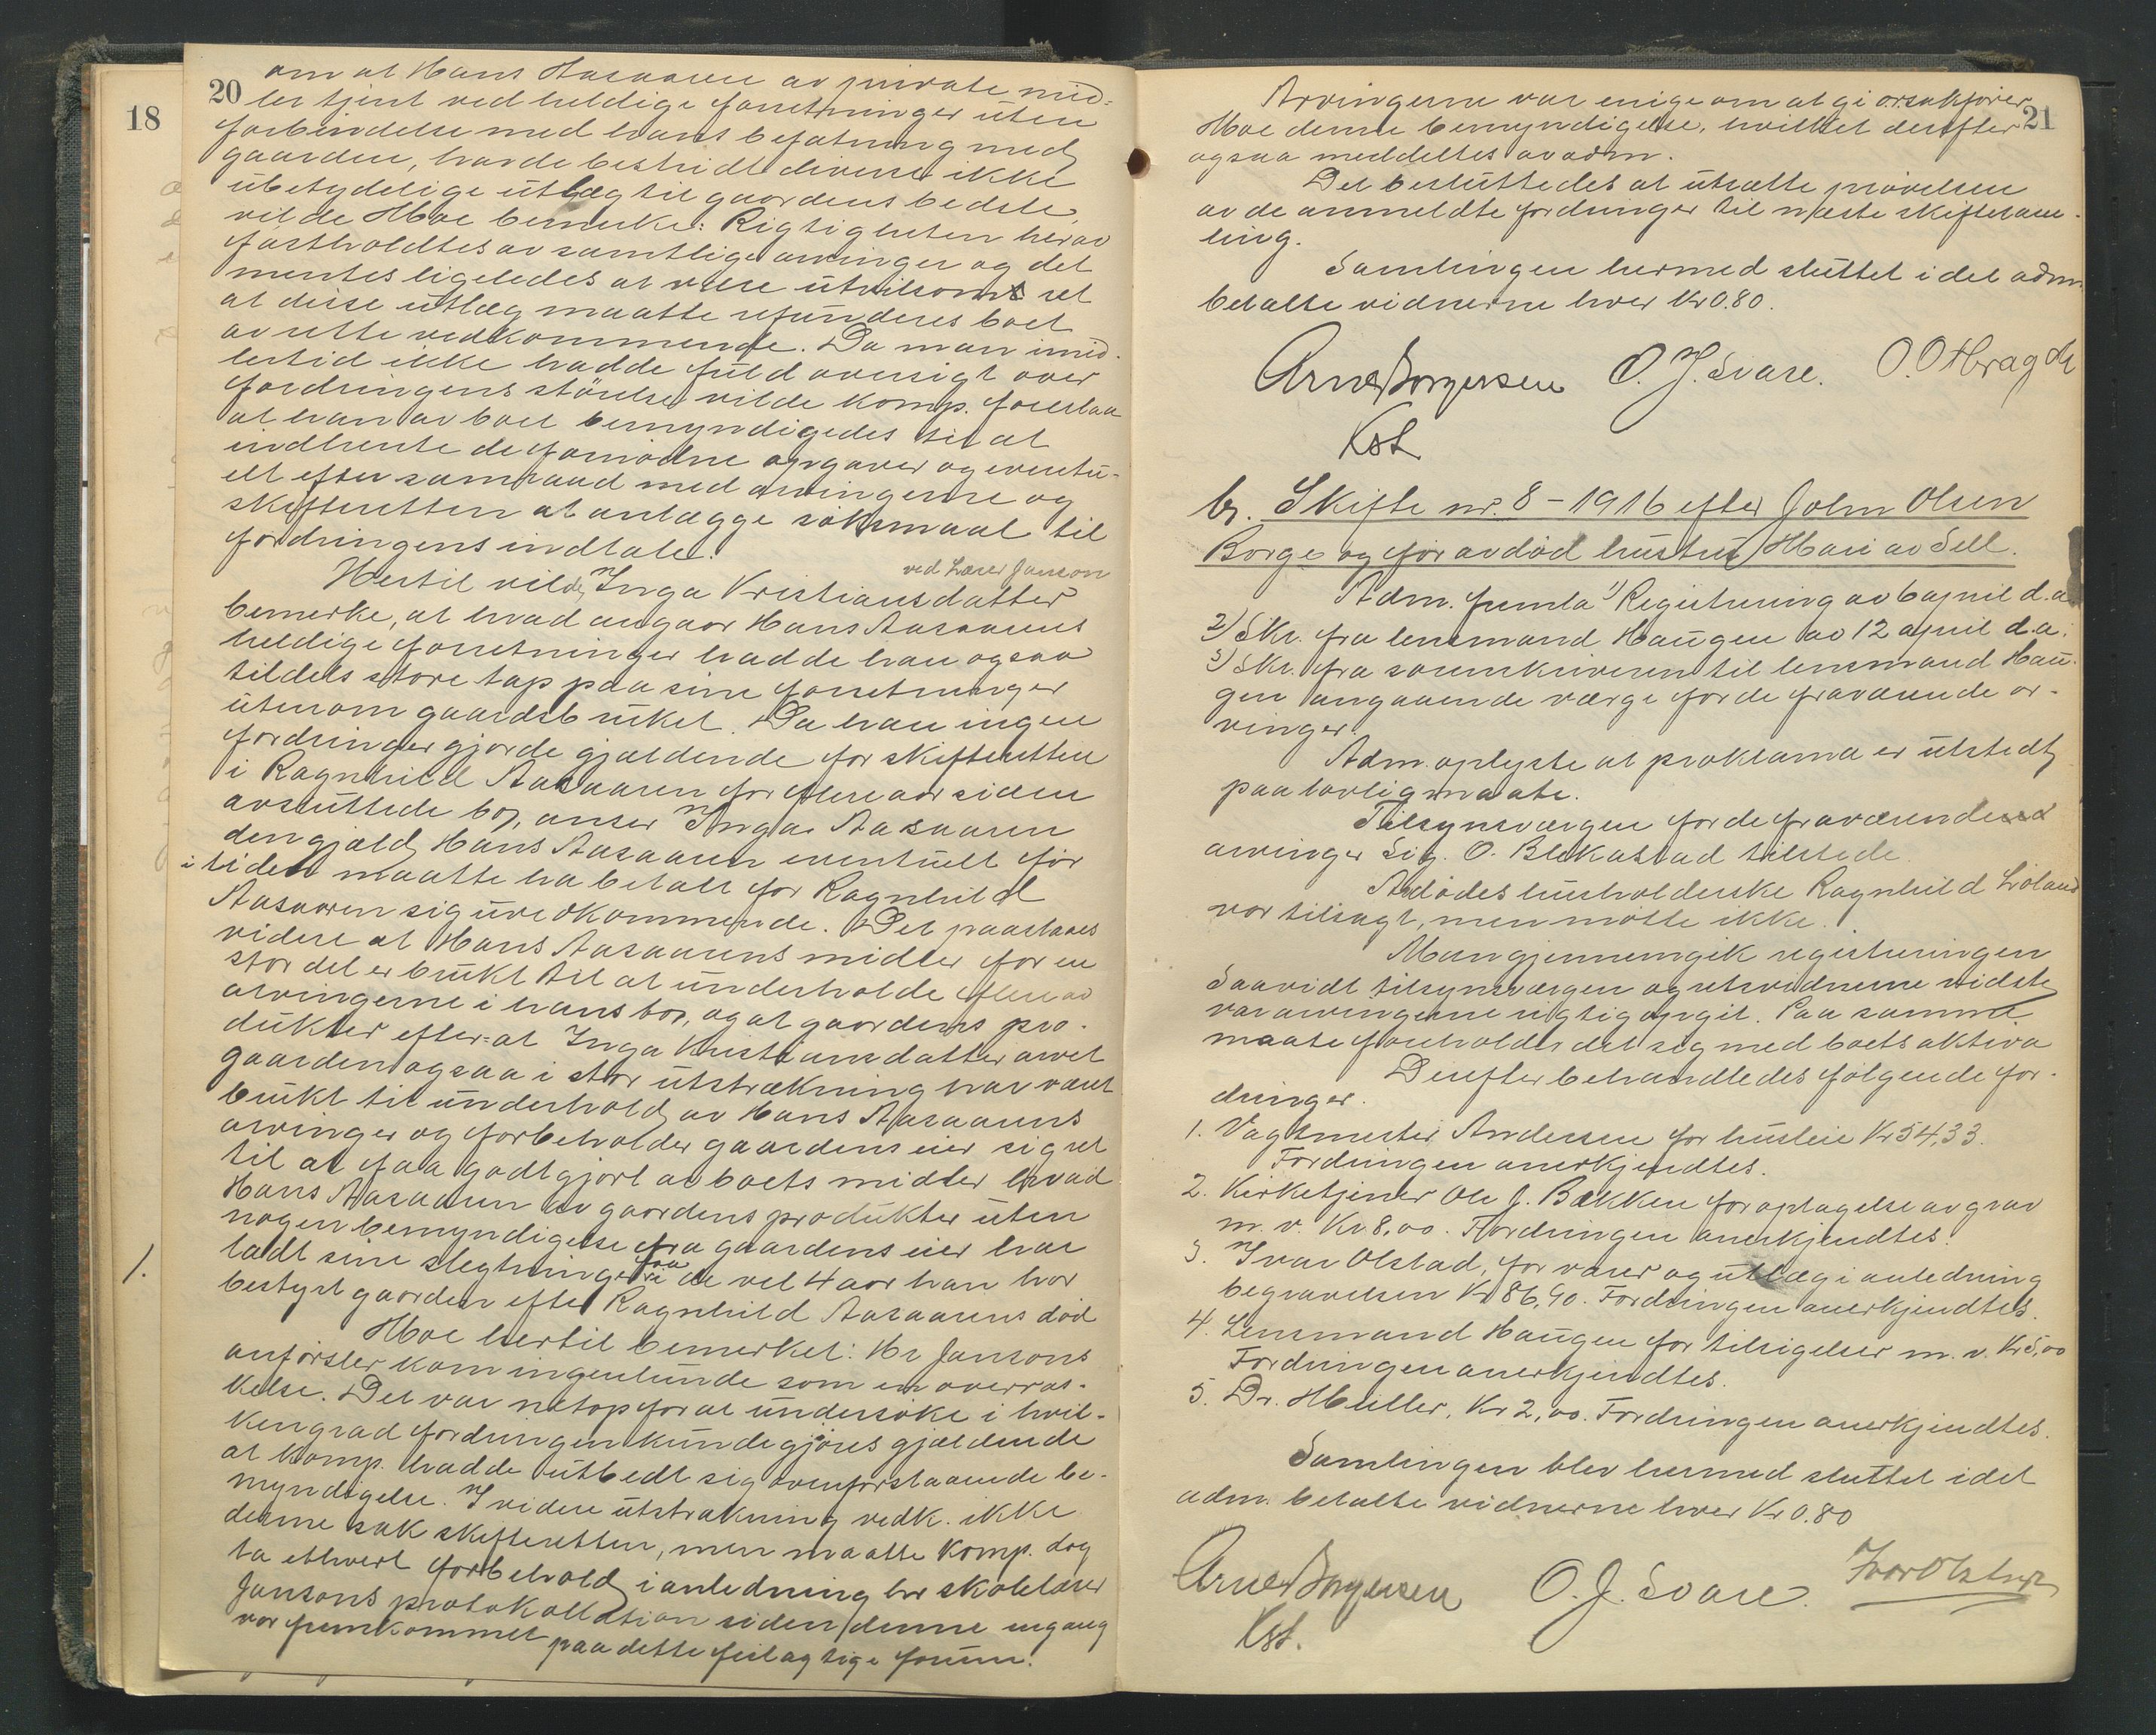 18
20
om at Hans Aasaaren av private mid=
ler tjent ved heldige forretninger uten
forbindelse med hans befatning med
gaarden, havde bestridt diverse ikke
ubetydelige utlæg til gaardens bedste,
vilde Hoe bemerke: Rigtigheten herav
fastholdtes av samtlige arvinger og det
mentes ligeledes at være utvilsomt ret
at disse utlæg maatte refunderes boet
av rette vedkommende. Da man imid-
lertid ikke hadde fuld oversigt over
fordringens störelse vilde komp. foreslaa
at han av boet bemyndigedes til at
indhente de fornödne opgaver og eventu-
elt efter samraad med arvingerne og
skifteretten at anlægge söksmaal til
fordringens indtale.
ved Lærer Janson
Hertil vilde Inga Kristiansdatter
bemerke, at hvad angaar Hans Aasaarens
heldige forretninger hadde han ogsaa
tildels store tap paa sine forretninger
utenom gaardsbruket. Da han ingen
fordringer gjorde gjældende for skifteretten
i Ragnhild Aasaaren for flere aar siden
avsluttede bo, anser Inga Aasaaren
den gjæld Hans Aasaaren eventuelt för
i tiden maatte ha betalt for Ragnhild
Aasaaren sig uvedkommende. Det paastaaes
videre at Hans Aasaarens midler for en
stor del er brukt til at underholde flere av
arvingerne i hans bo, og at gaardens pro-
dukter efter=at Inga Kristiansdatter arvet
gaarden ogsaa i stor utstrækning har været
brukt til underhold av Hans Aasaarens
arvinger og forbeholder gaardens eier sig ret
til at faa godtgjort av boets midler hvad
Hans Aasaaren av gaardens produkter uten
nogen bemyndigelse fra gaardens eier har
1.
ladt sine slegtninge faa i de vel 4 aar han har
bestyrt gaarden efter Ragnhild Aasaarens död
Hoe hertil bemerket: Hr Jansons
anförsler kom ingenlunde som en overras-
kelse. Det var netop for at undersöke i hvil-
ken grad fordringen kunde gjöres gjældende
at komp. hadde utbedt sig ovenforstaaende be-
myndigelse. I videre utstrækning vedk. ikke
denne sak skifteretten, men maatte komp. dog
ta ethvert forbehold i anledning hr skolelærer
Jansons protokollation siden denne engang
var fremkommet paa dette feilagtige forum.
21
Arvingerne var enige om at gi orsakförer
Hoe denne bemyndigelse, hvilket derefter
ogsaa meddeltes av adm.
Det besluttedes at utsætte prövelsen
av de anmeldte fordringer til næste skiftesam-
ling.
Samlingen hermed sluttet idet adm.
betalte vidnerne hver Kr 0.80.
Arne Borgersen O. J. Svare.
Kst
b. Skifte nr. 8 - 1916 efter John Olsen
Borge og för avdöd hustru Mari av Sell.
Adm. fremla 1) Registrering av 6 april d.a.
2) Skr. fra lensmand Haugen av 12 april d.a.
3) Skr. fra sorenskriveren til lensmand Hau-
gen angaaende værge for de fraværende ar-
vinger.
Adm. oplyste at proklama er utstedt
paa lovlig maate.
Tilsynsværgen for de fraværende
arvinger Sig. O. Blekastad tilstede.
Avdödes husholderske Ragnhild Löland
var tilsagt, men mötte ikke.
Man gjennemgik registreringen
Saavidt tilsynsværgen og retsvidnerne vidste
var arvingerne rigtig opgit. Paa samme
maate forholder det sig med boets aktiva
Derefter behandledes fölgende for-
dringer.
1. Vagtmester Andersen for husleie Kr 54,33.
Fordringen anerkjendtes.
2. Kirketjener Ole J. Bækken for optagelse av grav
m. v. Kr 8,00. Fordringen anerkjendtes.
3. Ivar Olstad, for varer og utlæg i anledning
begravelsen Kr 86,90. Fordringen anerkjendtes.
4. Lensmand Haugen for tilsigelser m. v. Kr 5,00
Fordringen anerkjendtes.
5. Dr. Müller, Kr 2,00. Fordringen anerkjendtes.
Samlingen blev hermed sluttet idet
adm. betalte vidnerne hver Kr 0.80
Arne Borgersen O. J. Svare. Ivar Olstad
Kst.